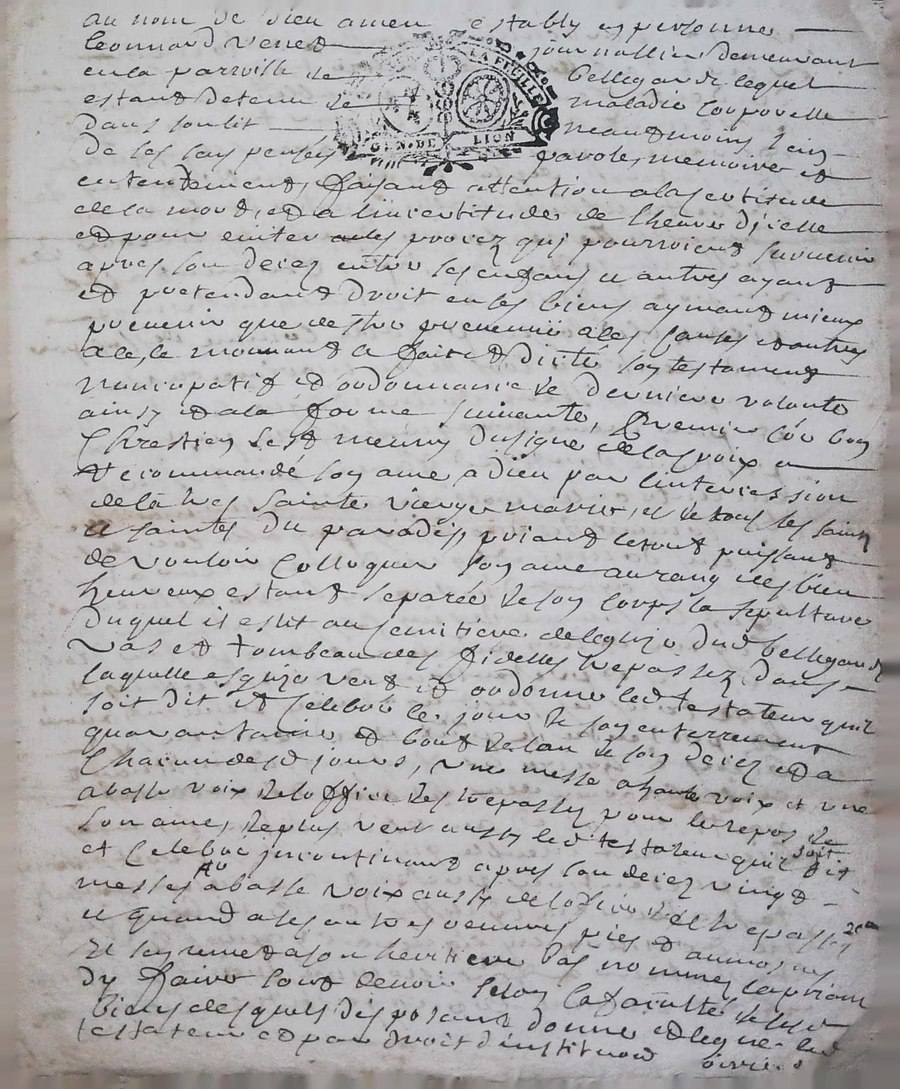 au nom de dieu amen establÿ en personne
leonnard Venet journallier demeurant
en la parroisse de bellegarde lequel
estant detenu de maladie corporelle
dans son lit neantmoins sens
de ses pensees parole, memoire et
entendement, faisant attention a la certitude
de la mort, et a lincertitude de lheure dicelle
et pour eviter aux procez qui pourroient survenir
apres son decez entre ses enfans et autres ayant
et pretendant droit en ses biens aymant mieux
prevenir que destre prevenu
a fait et dicté son testament
noncupatif et ordonnance de derniere volonté
ainsy et a la forme suivante, Premier co'e bon
Chrestien sest muny du signe de la croix a
recommandé son ame a dieu par lintercession
de la tres sainte vierge marie, et de tous les saints
et saintes du paradis, priant le tout puissant
de vouloir colloquer son ame au rang des bien
heureux estant separée de son corps la sepulture
duquel il eslit au semitiere de leglize dud bellegarde
vas et tombeau des fidelles trepassez dans
laquelle esglize veut et ordonne led testateur quil
soit dit et celebré le jour de son enterrement
quarantaine et bout de lan de son decez et a
Chacun desd jours, une messe a haute voix et une
a basse voix de loffice des trepassez pour le repos de
son ame, de plus veut aussy led testateur quil soit dit
et celebré incontinant apres son decez vingt
messes a basse voix aussy de loffice des trepassez
et quand a ses autres oeuvres pies et aumosnes
il sen remet a son heritiere bas nommée la priant
dy faire son devoir selon la faculté de ses
biens desquels disposant donne et legue led
testateur et par droit dinstitution
GEN. DE LION
LA FEUILLE